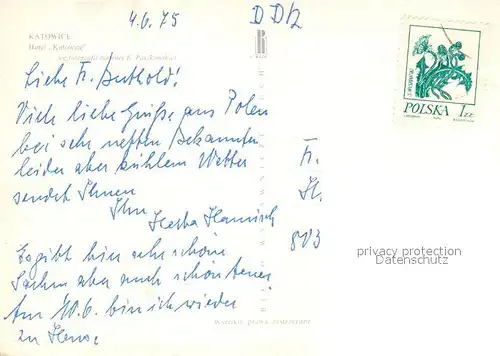 4.6.75
DDR
KATOWICE
Hotel „Katowice"
Liebe Fr. Berthold!
Viele liebe Grüße aus Polen
bei sehr netten Bekannten
leider aber kühlem Wetter
sendet Ihnen
Ihre
Es gibt hier sehr schöne
Sachen aber auch schön teuer.
Am 10.6. bin ich wieder
zu Hause
Fr.
H.
803
POLSKA 1 ZŁ
privacy protection
Datenschutz
WSZELKIE PRAWA ZASTRZEŻONE